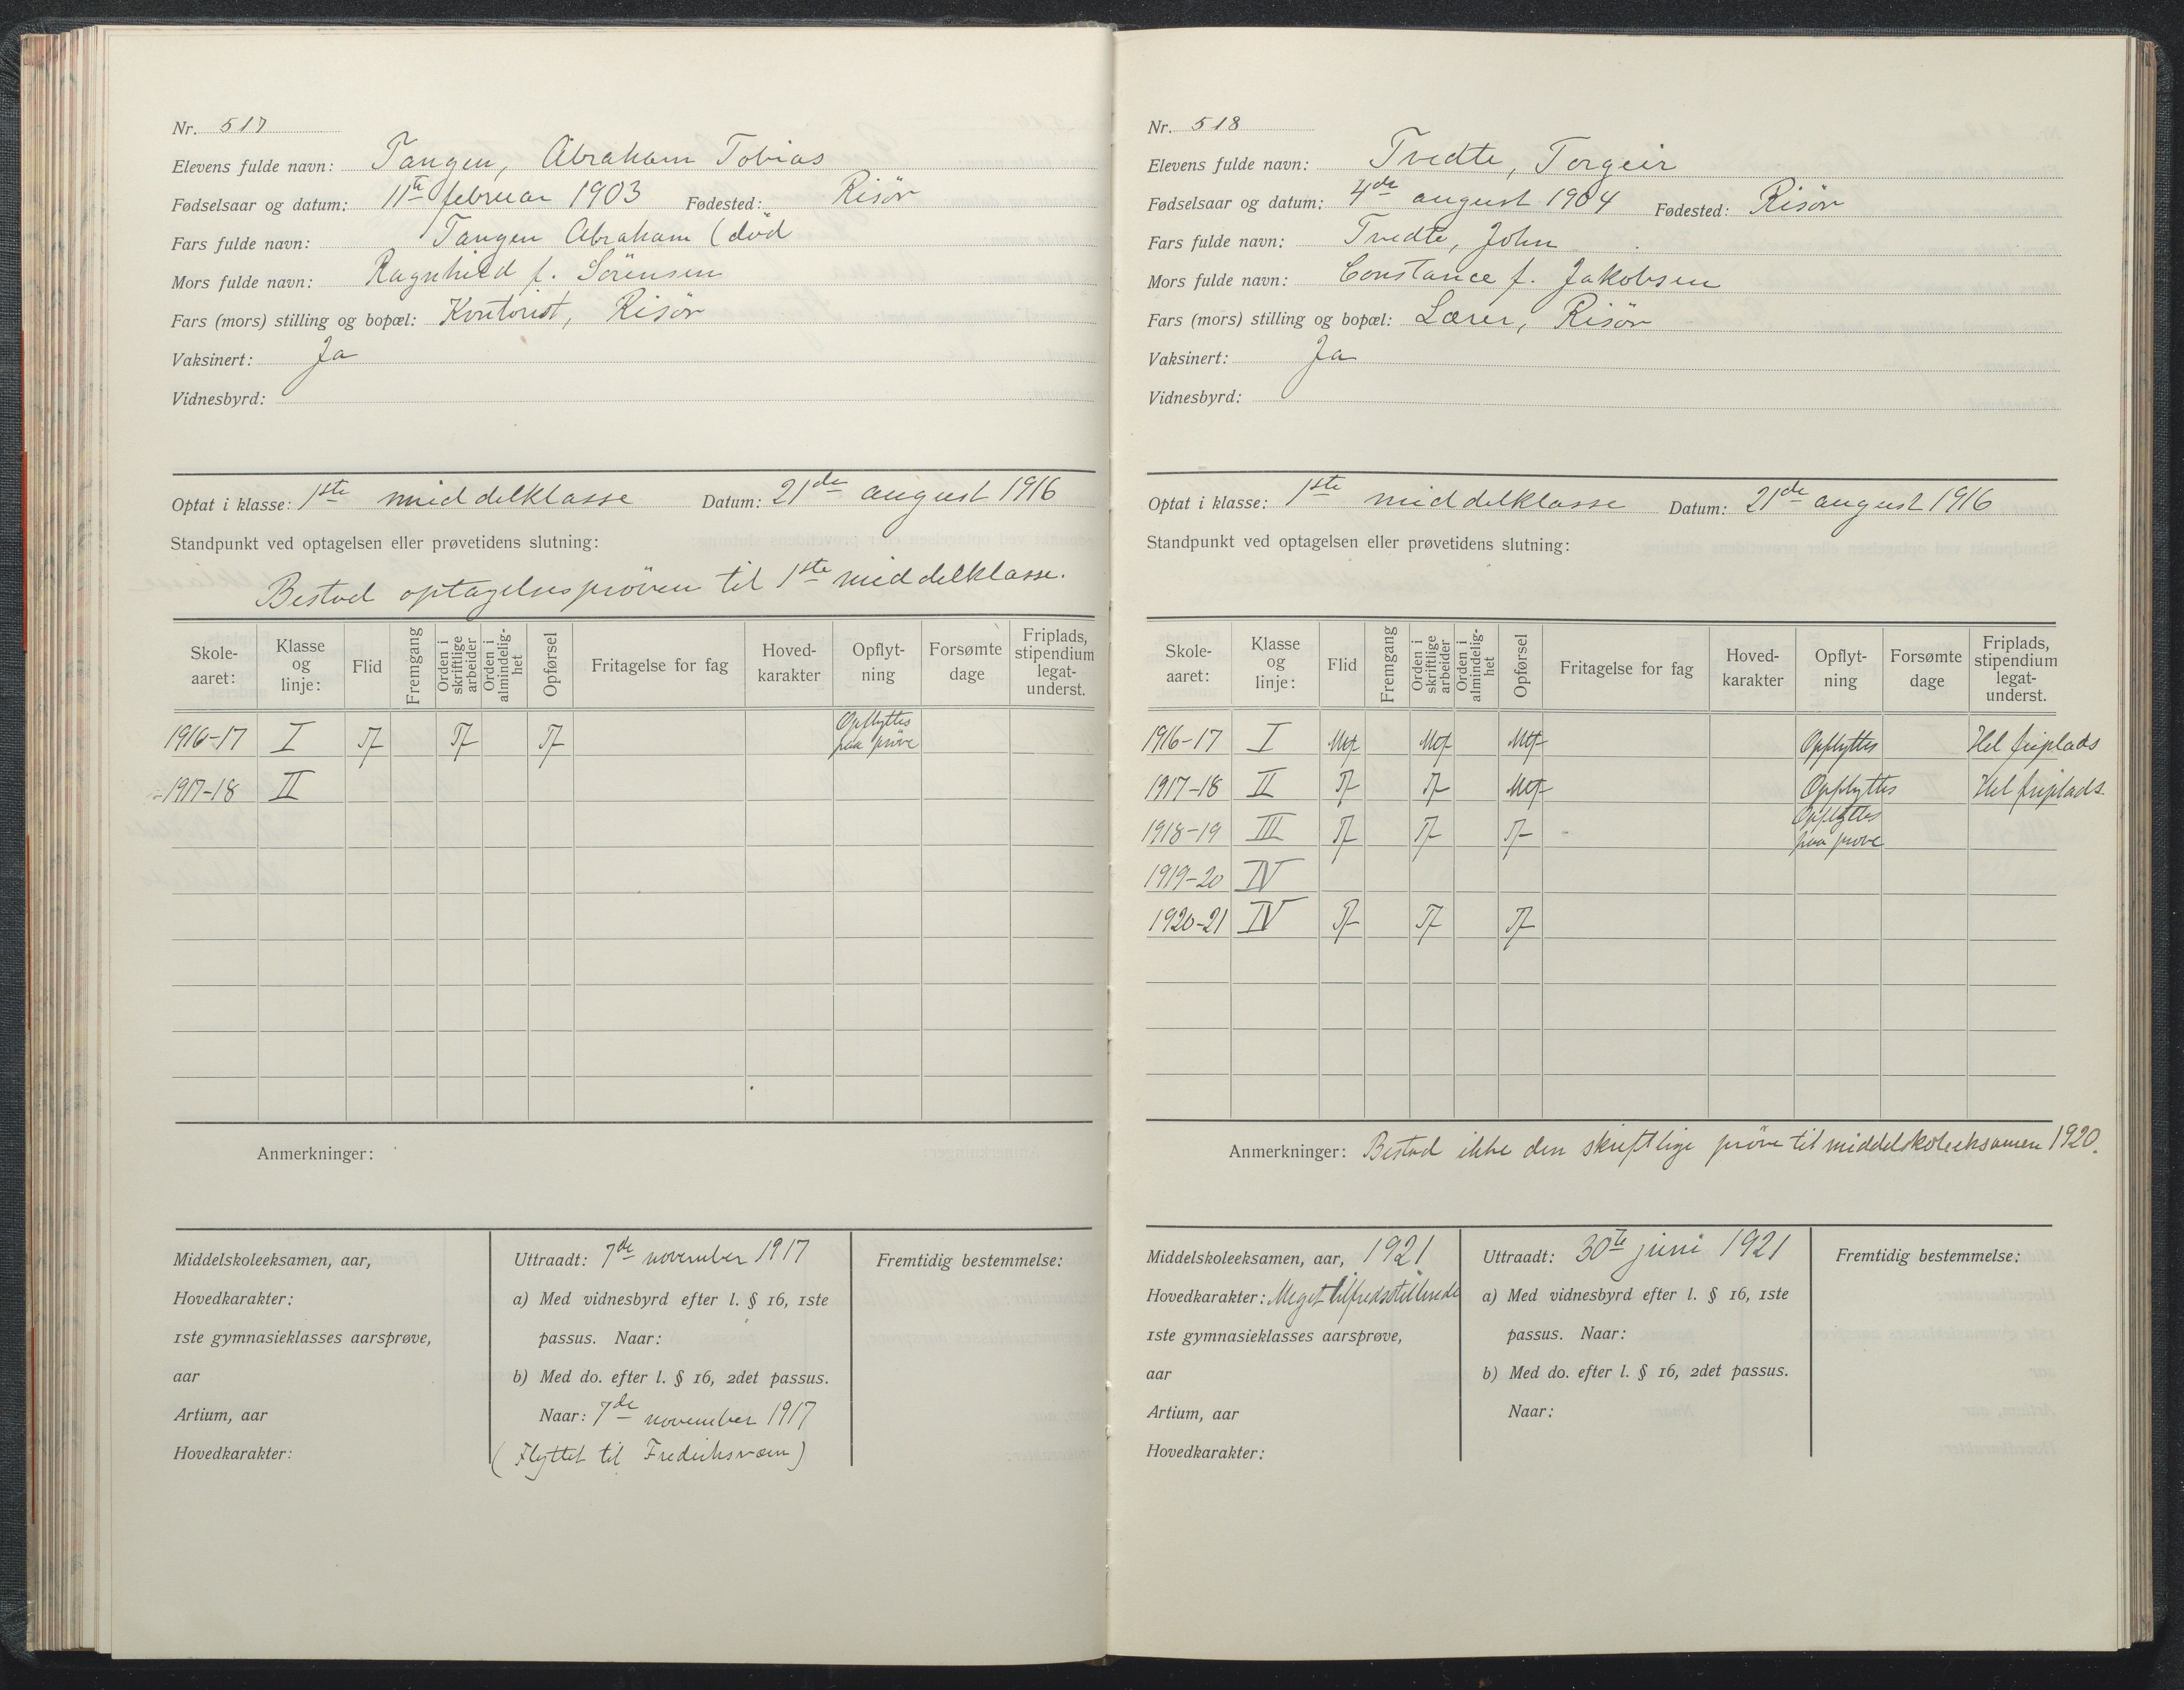 Nr. 517
Elevens fulde navn: Tangen, Abraham Tobias
Fødselsaar og datum: 11te februar 1903 Fødested: Risör
Fars fulde navn: Tangen Abraham (död
Mors fulde navn: Ragnhild f. Sörensen
Fars (mors) stilling og bopæl: Kontorist, Risör
Vaksinert: Ja
Vidnesbyrd:
Optat i klasse: 1ste middelklasse Datum: 21de august 1916
Standpunkt ved optagelsen eller prøvetidens slutning:
Bestod optagelsespröven til 1ste middelklasse.
Skole-aaret: Klasse og linje: Flid Fremgang Orden i skriftlige arbeider Orden i almindelig-het Opførsel Fritagelse for fag Hoved-karakter Opflyt-ning Forsømte dage Friplads, stipendium legat-underst.
1916-17 I Tf Tf Tf Opflyttes paa pröve
1917-18 II
Anmerkninger:
Middelskoleeksamen, aar,
Hovedkarakter:
1ste gymnasieklasses aarsprøve,
aar
Artium, aar
Hovedkarakter:
Uttraadt: 7de november 1917
a) Med vidnesbyrd efter l. § 16, 1ste
passus. Naar:
b) Med do. efter l. § 16, 2det passus.
Naar: 7de november 1917
(Flyttet til Frederiksværn)
Fremtidig bestemmelse:
Nr. 518
Elevens fulde navn: Tvedte, Torgeir
Fødselsaar og datum: 4de august 1904 Fødested: Risör
Fars fulde navn: Tvedte, John
Mors fulde navn: Constance f. Jakobsen
Fars (mors) stilling og bopæl: Lærer, Risör
Vaksinert: Ja
Vidnesbyrd:
Optat i klasse: 1ste middelklasse Datum: 21de august 1916
Standpunkt ved optagelsen eller prøvetidens slutning:
Skole-aaret: Klasse og linje: Flid Fremgang Orden i skriftlige arbeider Orden i almindelig-het Opførsel Fritagelse for fag Hoved-karakter Opflyt-ning Forsømte dage Friplads, stipendium legat-underst.
1916-17 I Mtf Mtf Mtf Opflyttes Hel friplads
1917-18 II Tf Tf Mtf Opflyttes Hel friplads.
1918-19 III Tf Tf Tf Opflyttes paa prove
1919-20 IV
1920-21 IV Tf Tf Tf
Anmerkninger: Bestod ikke den skriftlige pröve til middelskoleeksamen 1920.
Middelskoleeksamen, aar, 1921
Hovedkarakter: Meget tilfredsstillende
1ste gymnasieklasses aarsprøve,
aar
Artium, aar
Hovedkarakter:
Uttraadt: 30te juni 1921
a) Med vidnesbyrd efter l. § 16, 1ste
passus. Naar:
b) Med do. efter l. § 16, 2det passus.
Naar:
Fremtidig bestemmelse: